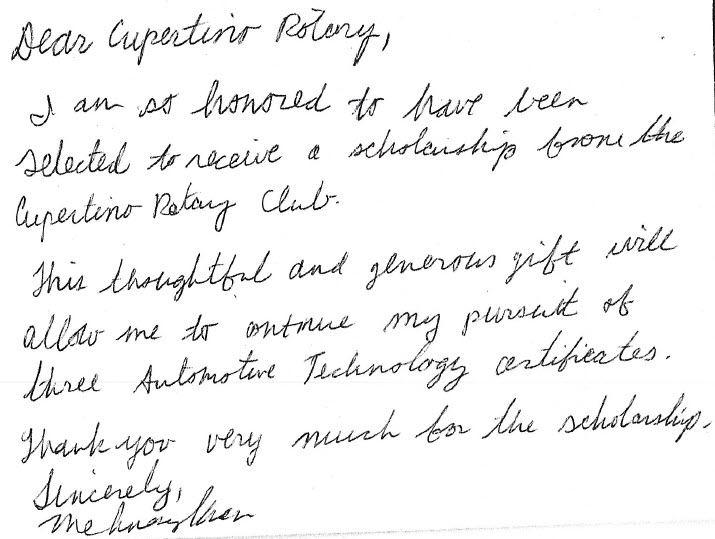 Dear Cupertino Rotary,
I am so honored to have been
selected to receive a scholarship from the
Cupertino Rotary Club.
This thoughtful and generous gift will
allow me to continue my pursuit of
three Automotive Technology certificates.
Thank you very much for the scholarship.
Sincerely,